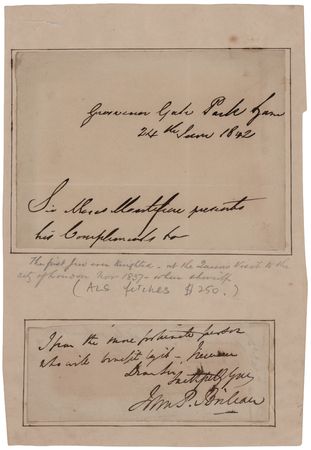 Grosvenor Gate Park Lane
24th June 1842
Sir Moses Montefiore presents
his Compliments to
The first Jew ever Knighted - at the Queens Visit to the
city of London Nov 1837 - when sheriff
(ALS fetches $250.)
I am the more fortunate person
who will benefit by it -
Dear Sir
faithfully yrs
John P. Boileau